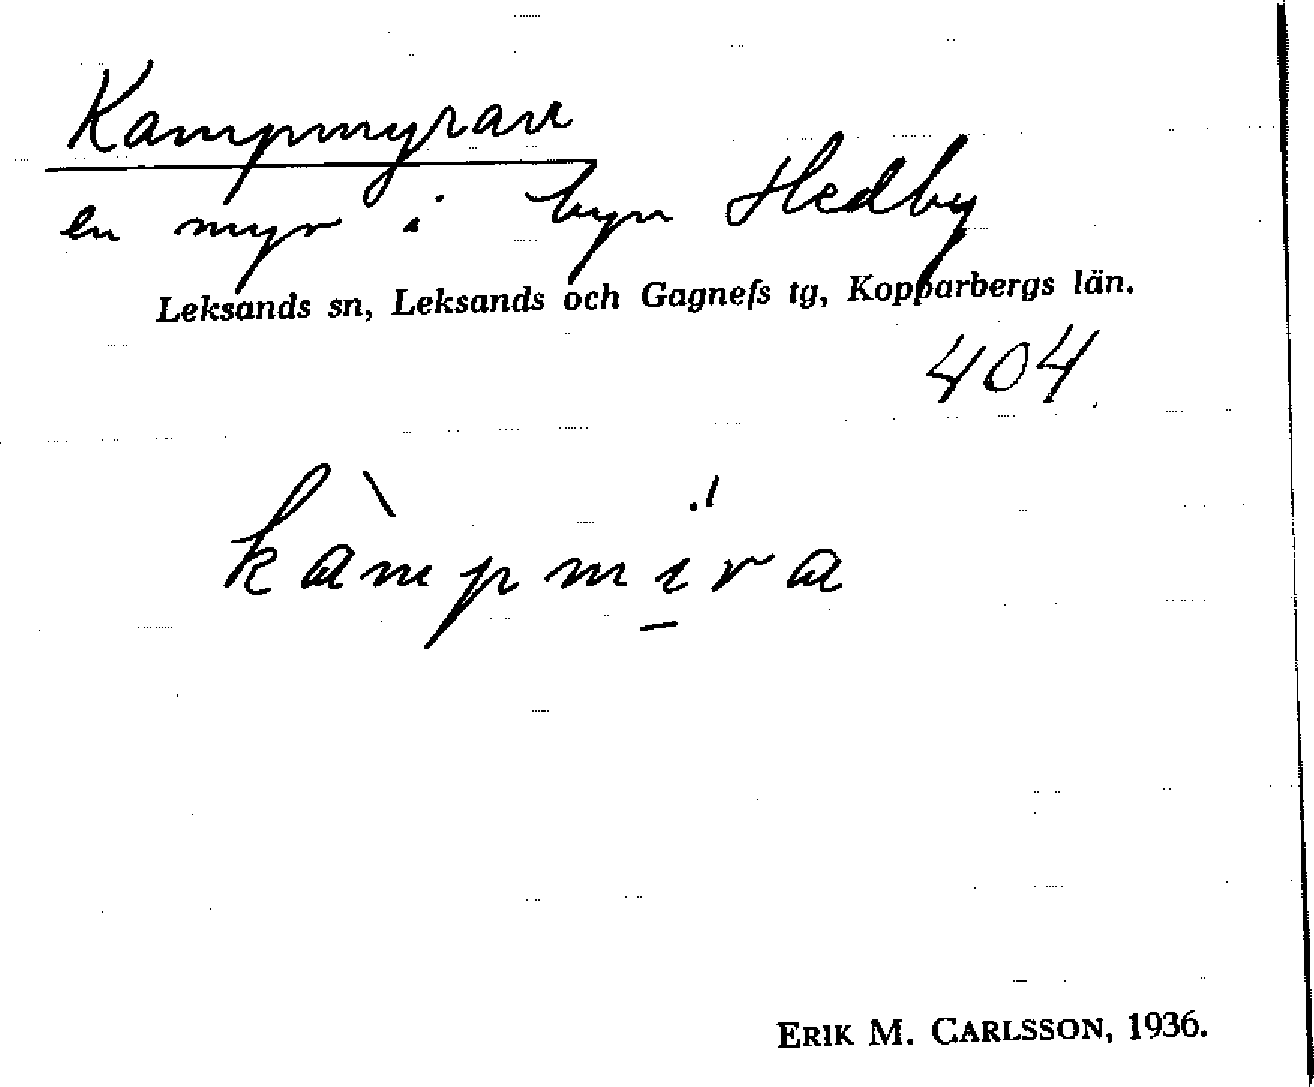 Kampmyran
en myr i byn Hedby
Leksands sn, Leksands och Gagnefs tg, Kopparbergs län.
404.
kàmpmí̠ra
ERIK M. CARLSSON, 1936.